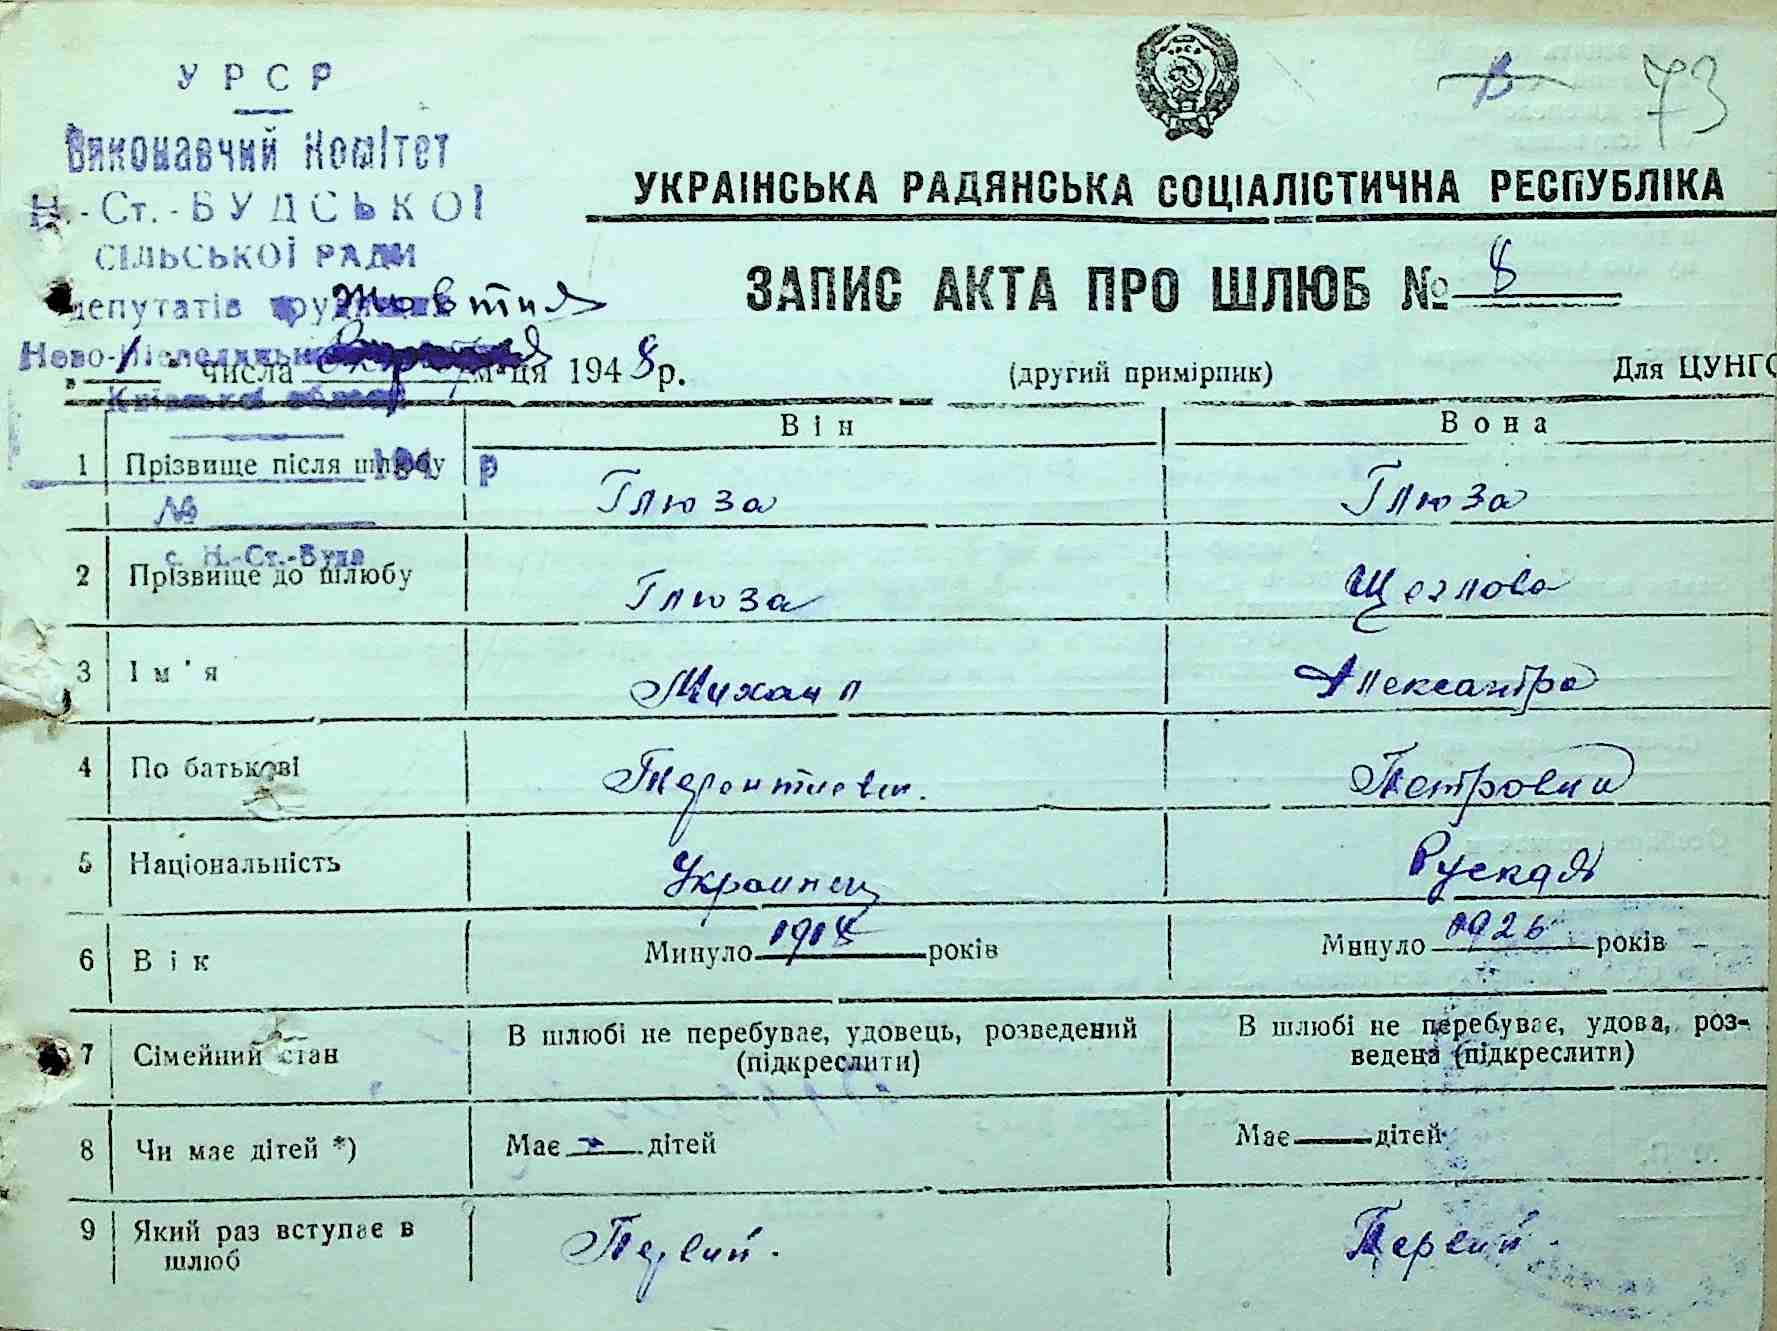 УРСР
Виконавчий Комітет
Н.-Ст.-БУДСЬКОЇ
СІЛЬСЬКОЇ РАДИ
депутатів трудящих
жовтня
В 73
УКРАЇНСЬКА РАДЯНСЬКА СОЦІАЛІСТИЧНА РЕСПУБЛІКА
ЗАПИС АКТА ПРО ШЛЮБ № 8
„ 1 " числа м-ця 1948 р. (другий примірник) Для ЦУНГО
Він Вона
1 Прізвище після шлюбу Глюза Глюза
194 р
№
с. Н.-Ст.-Буда
2 Прізвище до шлюбу Глюза Щеглова
3 Ім'я Михаил Александра
4 По батькові Терентиевич. Петровни
5 Національність Украинец Руская
6 Вік Минуло 1918 років Минуло 1926 років
7 Сімейний стан В шлюбі не перебуває, удовець, розведений (підкреслити) В шлюбі не перебуває, удова, роз-
ведена (підкреслити)
8 Чи має дітей *) Має дітей Має дітей
9 Який раз вступає в Первий. Первий.
шлюб